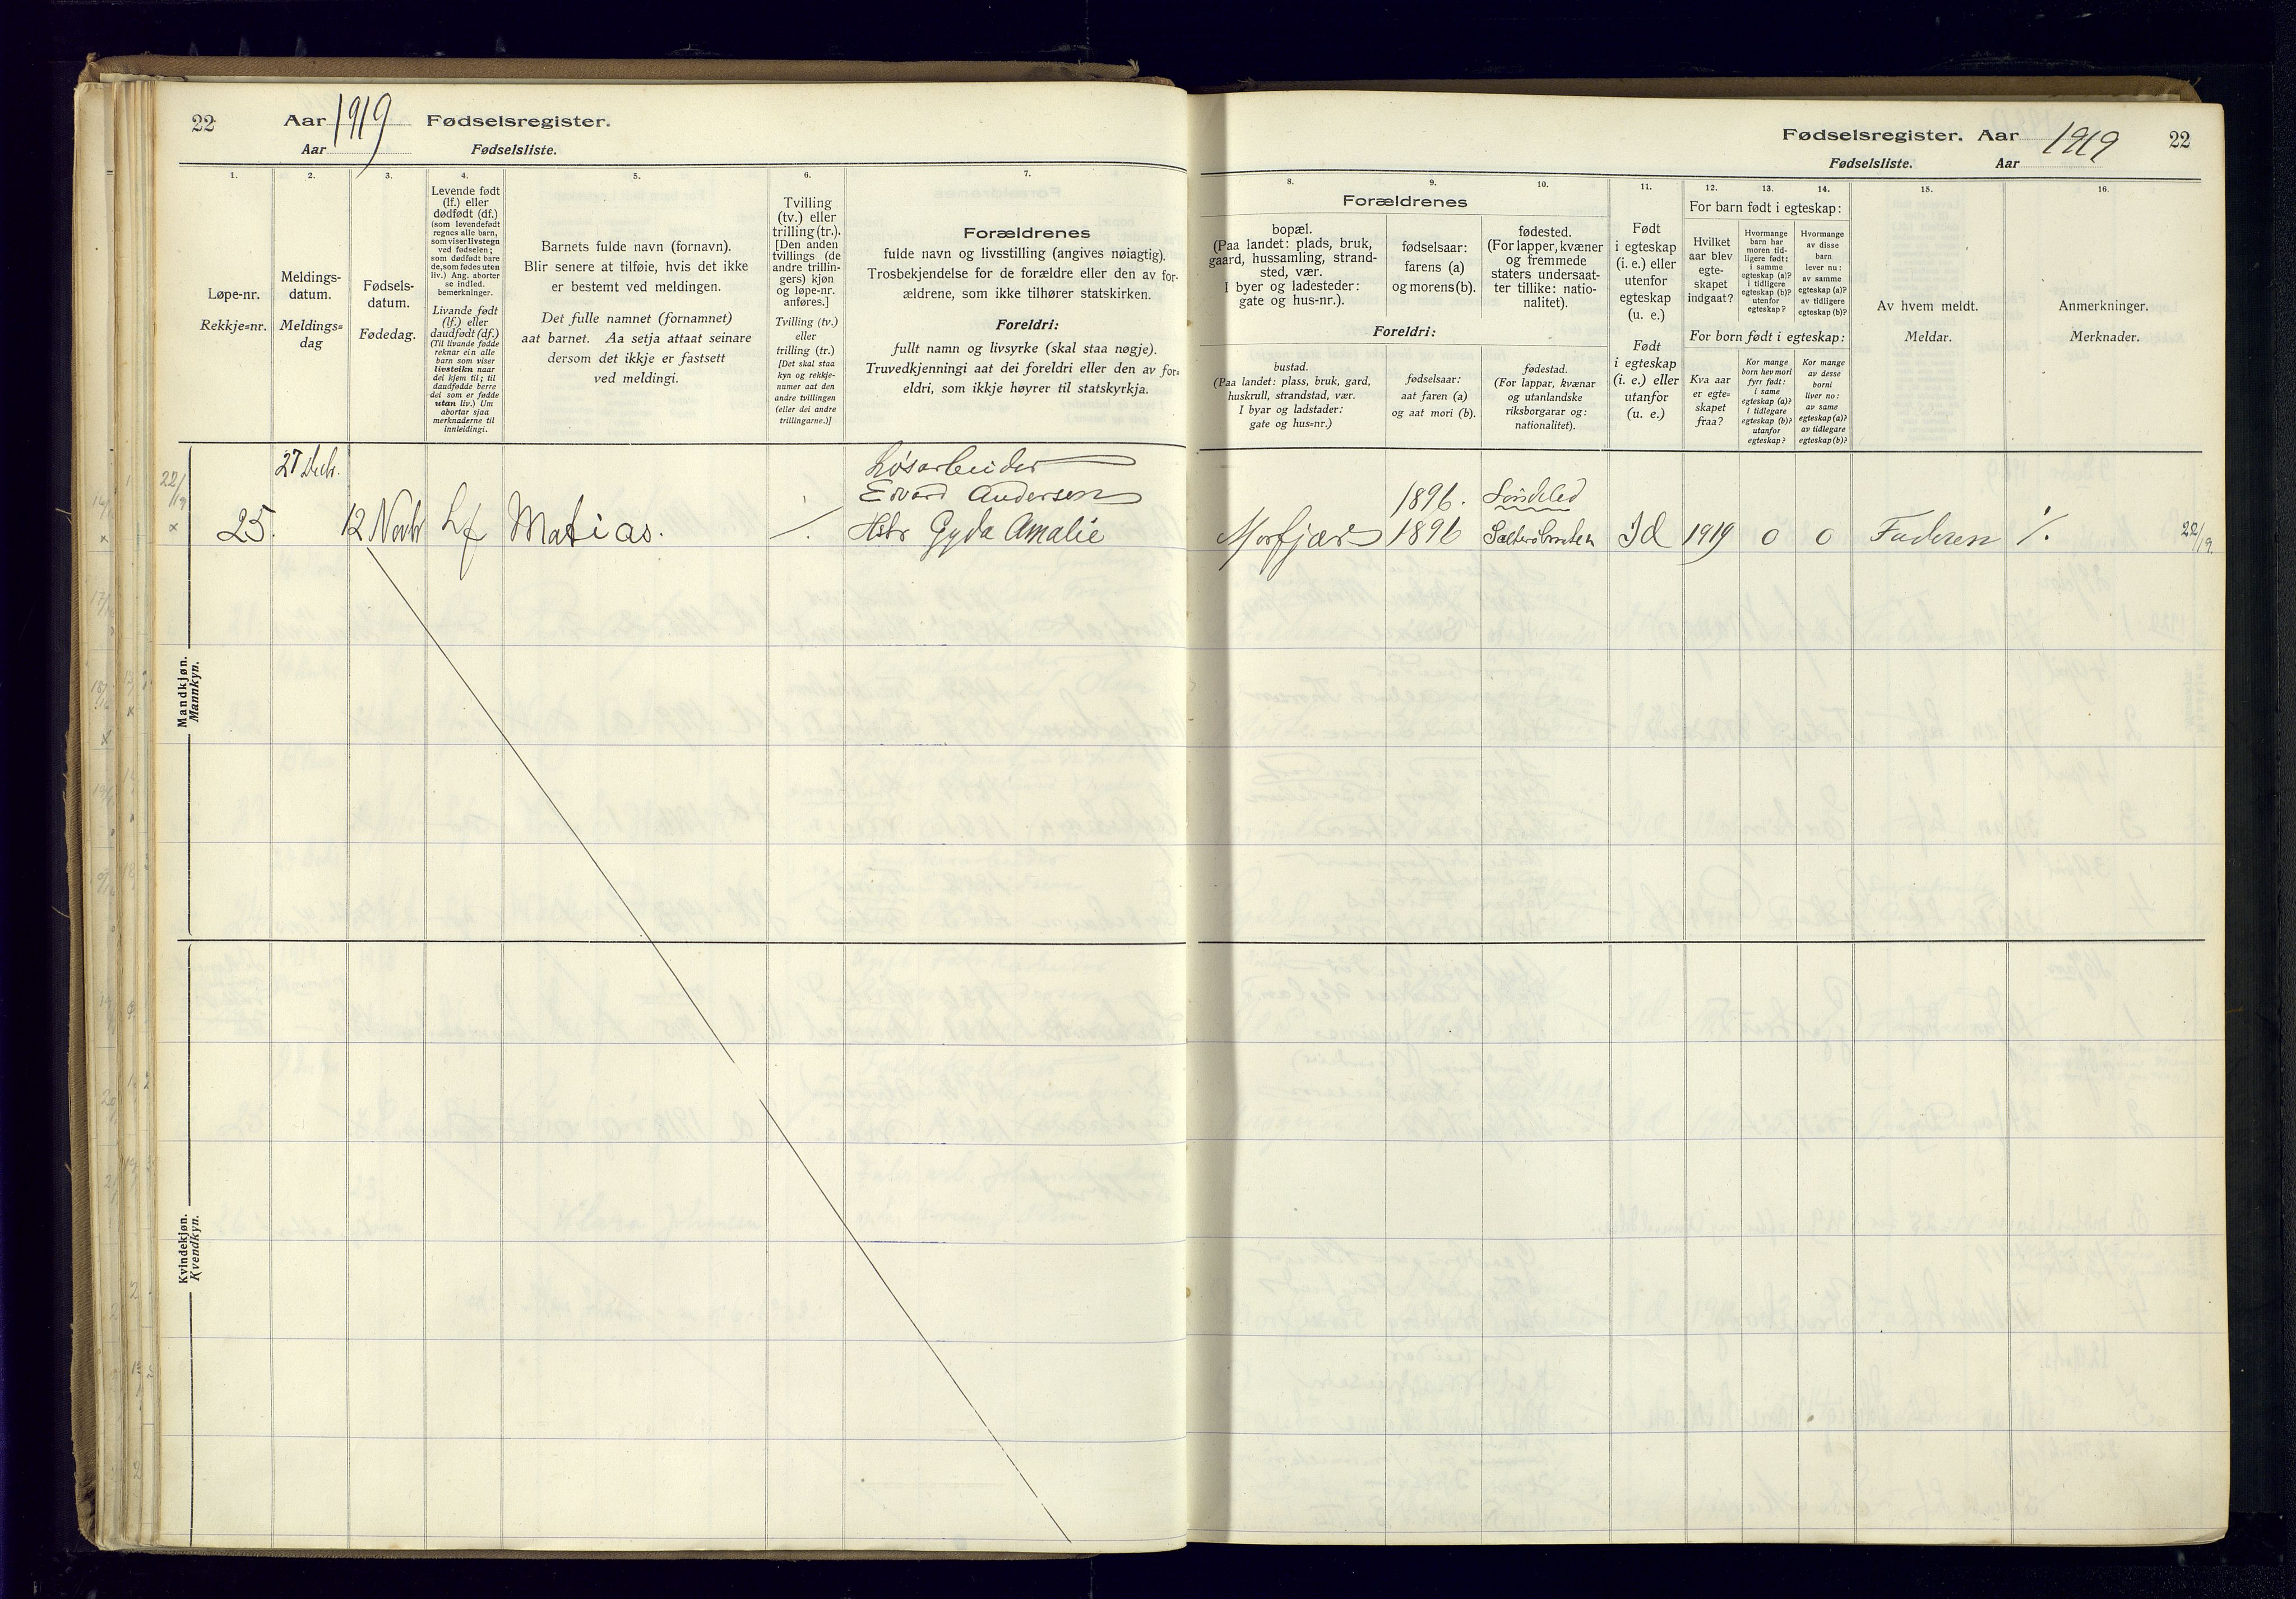 22 Aar 1919 Fødselsregister.
Aar Fødselsliste.
1.
Løpe-nr.
Rekkje=nr.
2.
Meldings-
datum.
Meldings=
dag
3.
Fødsels-
datum.
Fødedag.
4.
Levende født
(lf.) eller
dødfødt (df.)
(som levendefødt
regnes alle barn,
som viser livstegn
ved fødselen;
som dødfødt bare
de, som fødes uten
liv.) Ang. aborter
se indled.
bemerkninger.
Livande født
(lf.) eller
daudfødt (df.)
(Til livande fødde
reknar ein alle
barn som viser
livsteikn naar
dei kjem til; til
daudfødde berre
dei som er fødde
utan liv.) Um
abortar sjaa
merknaderne til
innleidingi.
5.
Barnets fulde navn (fornavn).
Blir senere at tilføie, hvis det ikke
er bestemt ved meldingen.
Det fulle namnet (fornamnet)
aat barnet. Aa setja attaat seinare
dersom det ikkje er fastsett
ved meldingi.
6.
Tvilling
(tv.) eller
trilling (tr.).
[Den anden
tvillings (de
andre trillin-
gers) kjøn
og løpe-nr.
anføres.]
Tvilling (tv.)
eller
trilling (tr.)
[Det skal staa
kyn og rekkje-
numer aat den
andre tvillingen
(eller dei andre
trillingarne.)]
7.
Forældrenes
fulde navn og livsstilling (angives nøiagtig).
Trosbekjendelse for de forældre eller den av for-
ældrene, som ikke tilhører statskirken.
Foreldri:
fullt namn og livsyrke (skal staa nøgje).
Truvedkjenningi aat dei foreldri eller den av for=
eldri, som ikkje høyrer til statskyrkja.
Mandkjøn.
Mannkyn.
22/19
x
25.
27 Decbr.
12 Novbr
Lf
Matias.
Løsarbeider
Edvard Andersen
Hstr Gyda Amalie
Kvindekjøn.
Kvendkyn.
Fødselsregister. Aar 1919 22
Fødselsliste. Aar
Forældrenes
8.
bopæl.
(Paa landet: plads, bruk,
gaard, hussamling, strand-
sted, vær.
I byer og ladesteder:
gate og hus-nr.).
9.
fødselsaar:
farens (a)
og morens (b).
10.
fødested.
(For lapper, kvæner
og fremmede
staters undersaat-
ter tillike: natio-
nalitet).
Foreldri:
bustad.
(Paa landet: plass, bruk, gard,
huskrull, strandstad, vær.
I byar og ladstader:
gate og hus=nr.)
fødselsaar:
aat faren (a)
og aat mori (b).
fødestad.
(For lappar, kvænar
og utanlandske
riksborgarar og:
nationalitet).
11.
Født
i egteskap
(i. e.) eller
utenfor
egteskap
(u. e.)
Født
i egteskap
(i. e.) eller
utanfor
(u. e.)
12. 13. 14.
For barn født i egteskap:
Hvilket
aar blev
egte-
skapet
indgaat?
Hvormange
barn har
moren tid-
ligere født:
i samme
egteskap (a)?
i tidligere
egteskap (b)?
utenfor
egteskap?
Hvormange
av disse
barn
lever nu:
av samme
egteskap (a)?
av tidligere
egteskap (b)?
For born født i egteskap:
Kva aar
er egte=
skapet
fraa?
Kor mange
born hev mori
fyrr født:
i same
egteskap (a)?
i tidlegare
egteskap (b)?
utanfor
egteskap?
Kor mange
av desse
borni
liver no:
av same
egteskap (a)?
av tidlegare
egteskap (b)?
15.
Av hvem meldt.
Meldar.
16.
Anmerkninger.
Merknader.
1896. Søndeled
1896
Id 1919 0 0 Faderen ./.
22/19.